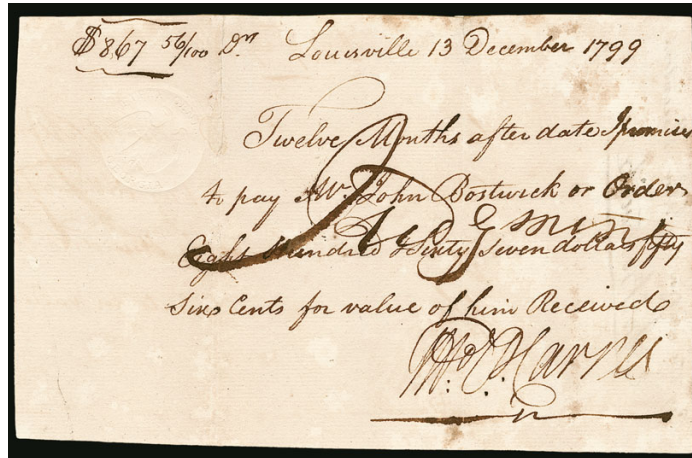 $867 56/100 Drs Louisville 13 December 1799
Twelve Months after date I promise
to pay Mr. John Bostwick or Order
Judgment
Eight Hundred & Sixty Seven dollars fifty
Six Cents for value of him Received